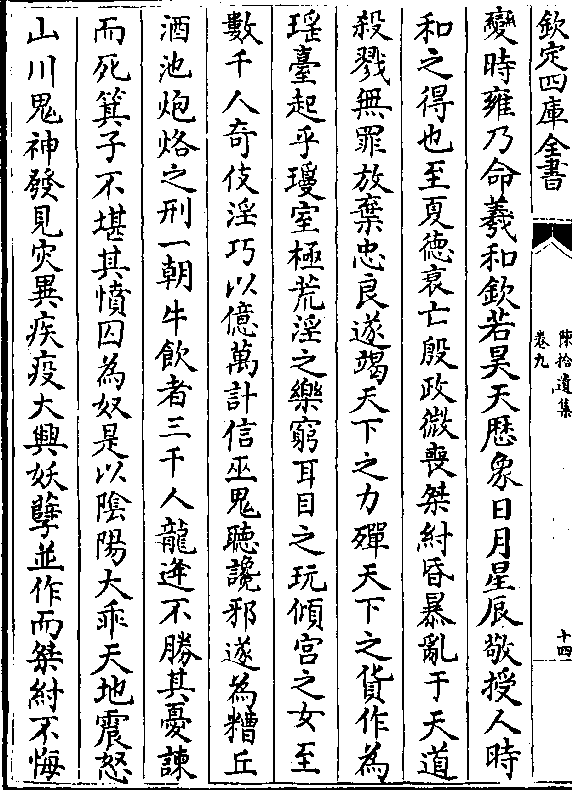 欽定四庫全書
陳拾遺集
卷九
十四
變時雍乃命羲和欽若昊天歴象日月星辰敬授人時
和之得也至夏德衰亡殷政微喪桀紂昏暴亂于天道
殺戮無罪放棄忠良遂竭天下之力殫天下之貨作為
瑤臺起乎瓊室極荒淫之樂窮耳目之玩傾宫之女至
數千人奇伎淫巧以億萬計信巫鬼聽讒邪遂為糟丘
酒池炮烙之刑一朝牛飲者三千人龍逄不勝其憂諫
而死箕子不堪其憤囚為奴是以陰陽大乖天地震怒
山川鬼神發見災異疾疫大興妖孽並作而桀紂不悔